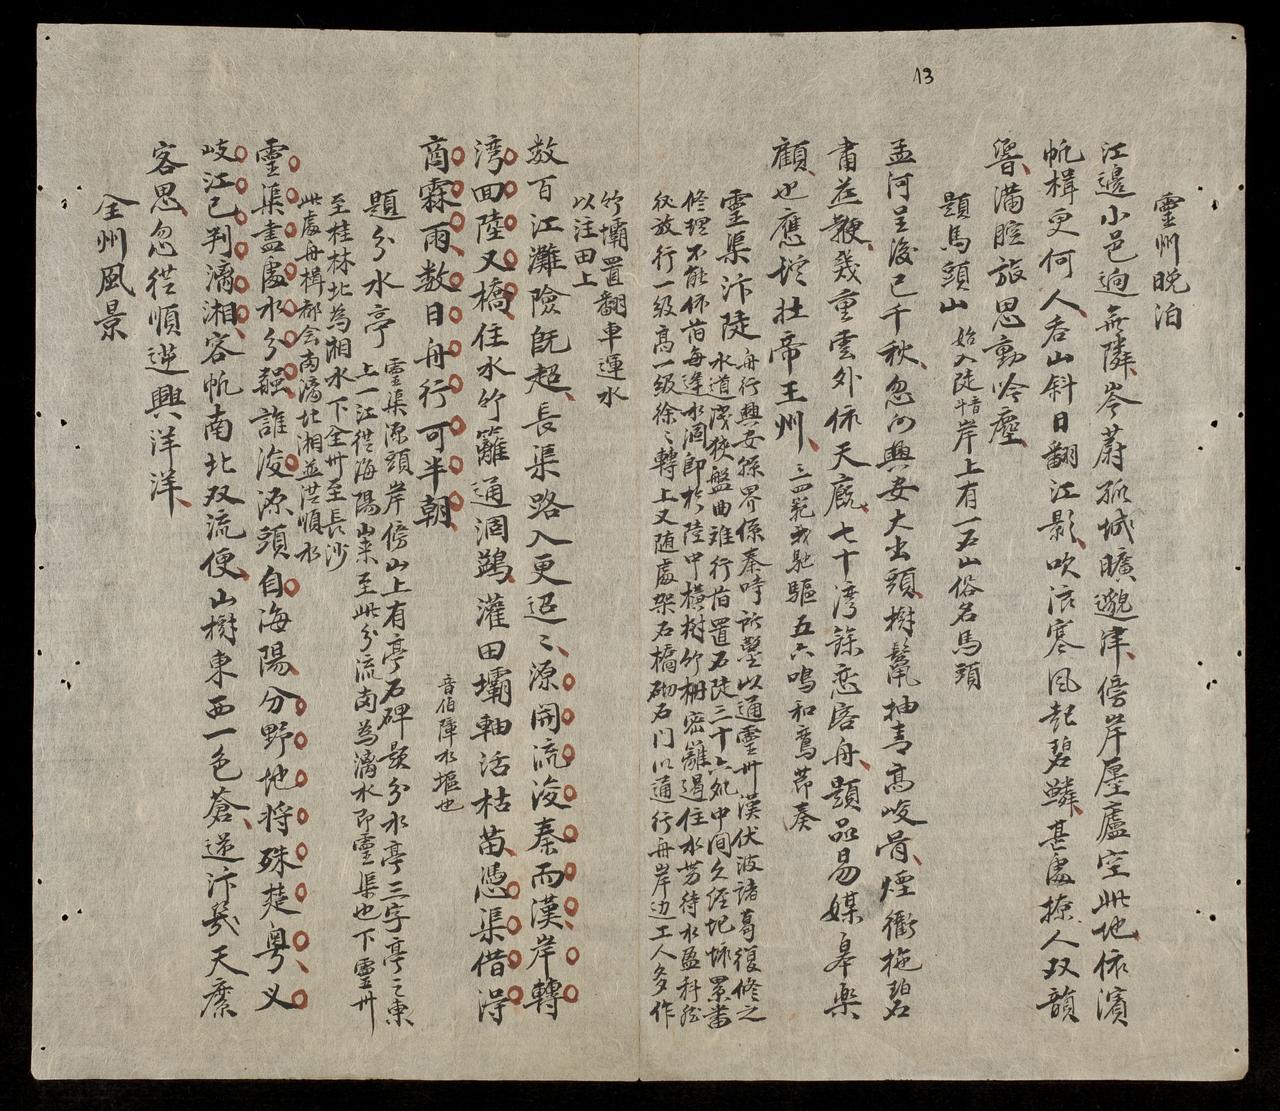 13
靈州晚泊
江邊小邑逈無隣岑蔚孤城曠邈津傍岸廛廬空此地依濱
帆楫更何人吞山斜日翻江影吹浪寒風起碧鱗甚處撩人双韻
響滿腔旅思動吟塵
題馬頭山 始入陡岸上有一石山俗名馬頭
孟河呈後已千秋忽向興安大出頭樹鬣抽青高峻骨煙銜拖碧石
肅并鞭幾重雲外依天廄七十湾餘恋客舟題品易媒皋樂
顧也應垞壮帝王州 三四範我馳驅五六鳴和鸞節奏
靈渠汴陡 舟行興安縣界係秦時所鑿以通靈州漢伏波諸葛復修之
水道淺狹盤曲难行昔置石陡三十六処中間久經圮壊累書
修理不能依旧每逢水涸即於陸中橫樹竹柵密籬遏住水势待水盈科然
後放行一級高一級徐々轉上又随處架石橋砌石门以通行舟岸边工人多作
竹壩置翻車運水
以注田上
数百江灘險既超長渠路入更迢々源開流浚秦而漢岸轉
湾回陸又橋住水竹籬通涸鷁灌田壩軸活枯苗憑渠借得
商霖雨数日舟行可半朝 音伯障水堰也
題分水亭 靈渠源頭岸傍山上有亭石碑題分水亭三字亭之東
上一江從海陽山来至此分流南為漓水即靈渠也下靈州
至桂林北為湘水下全州至長沙
此處舟楫都会南漓北湘並從順水
靈渠盡處水分韞誰浚源頭自海陽分野地将殊楚粤义
岐江已判漓湘客帆南北双流便山樹東西一色蒼逆汴幾天縻
客思忽從順逆興洋洋
全州風景